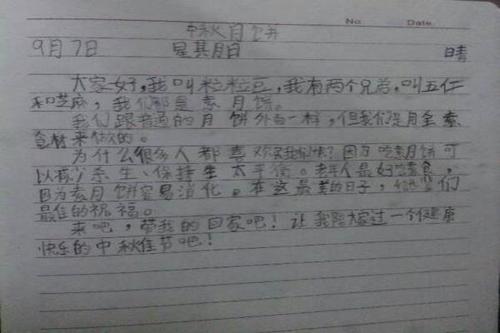 No    Date
中秋月饼
9月7日 星其月日 晴
大家好，我叫粒粒豆，我有两个兄弟，叫五仁
和芝麻，我们都是素月饼。
我们跟普通的月饼外看一样，但我们是月全素
食材来做的。
为什么很多人都喜欢买我们快？因为吃素月饼可
以减少杀生、保持生太平衡。老年人最好吃素食，
因为素月饼容易消化。在这最美的日子，们
最佳的祝福。
来吧，带我的回家吧！让我陪大家过一个健康
快乐的中秋佳节吧！